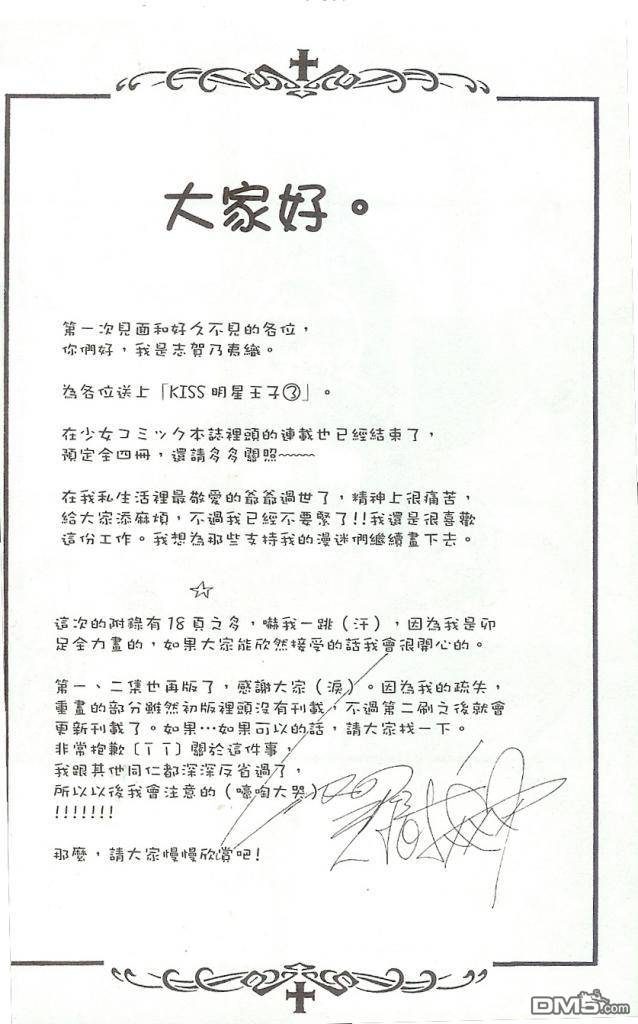 大家好。
第一次見面和好久不見的各位，
你們好，我是志賀乃夷織。
為各位送上「KISS明星王子③」。
在少女コミック本誌裡頭的連載也已經結束了，
預定全四冊，還請多多關照~~~~
在我私生活裡最敬愛的爺爺過世了，精神上很痛苦，
給大家添麻煩，不過我已經不要緊了!!我還是很喜歡
這份工作。我想為那些支持我的漫迷們繼續畫下去。
☆
這次的附錄有18頁之多，嚇我一跳（汗），因為我是卯
足全力畫的，如果大家能欣然接受的話我會很開心的。
第一、二集也再版了，感謝大家（淚）。因為我的疏失，
重畫的部分雖然初版裡頭沒有刊載，不過第二刷之後就會
更新刊載了。如果…如果可以的話，請大家找一下。
非常抱歉〔ㄒㄒ〕關於這件事，
我跟其他同仁都深深反省過了，
所以以後我會注意的（嚎啕大哭）
!!!!!!!
那麼，請大家慢慢欣賞吧!
DM5.com